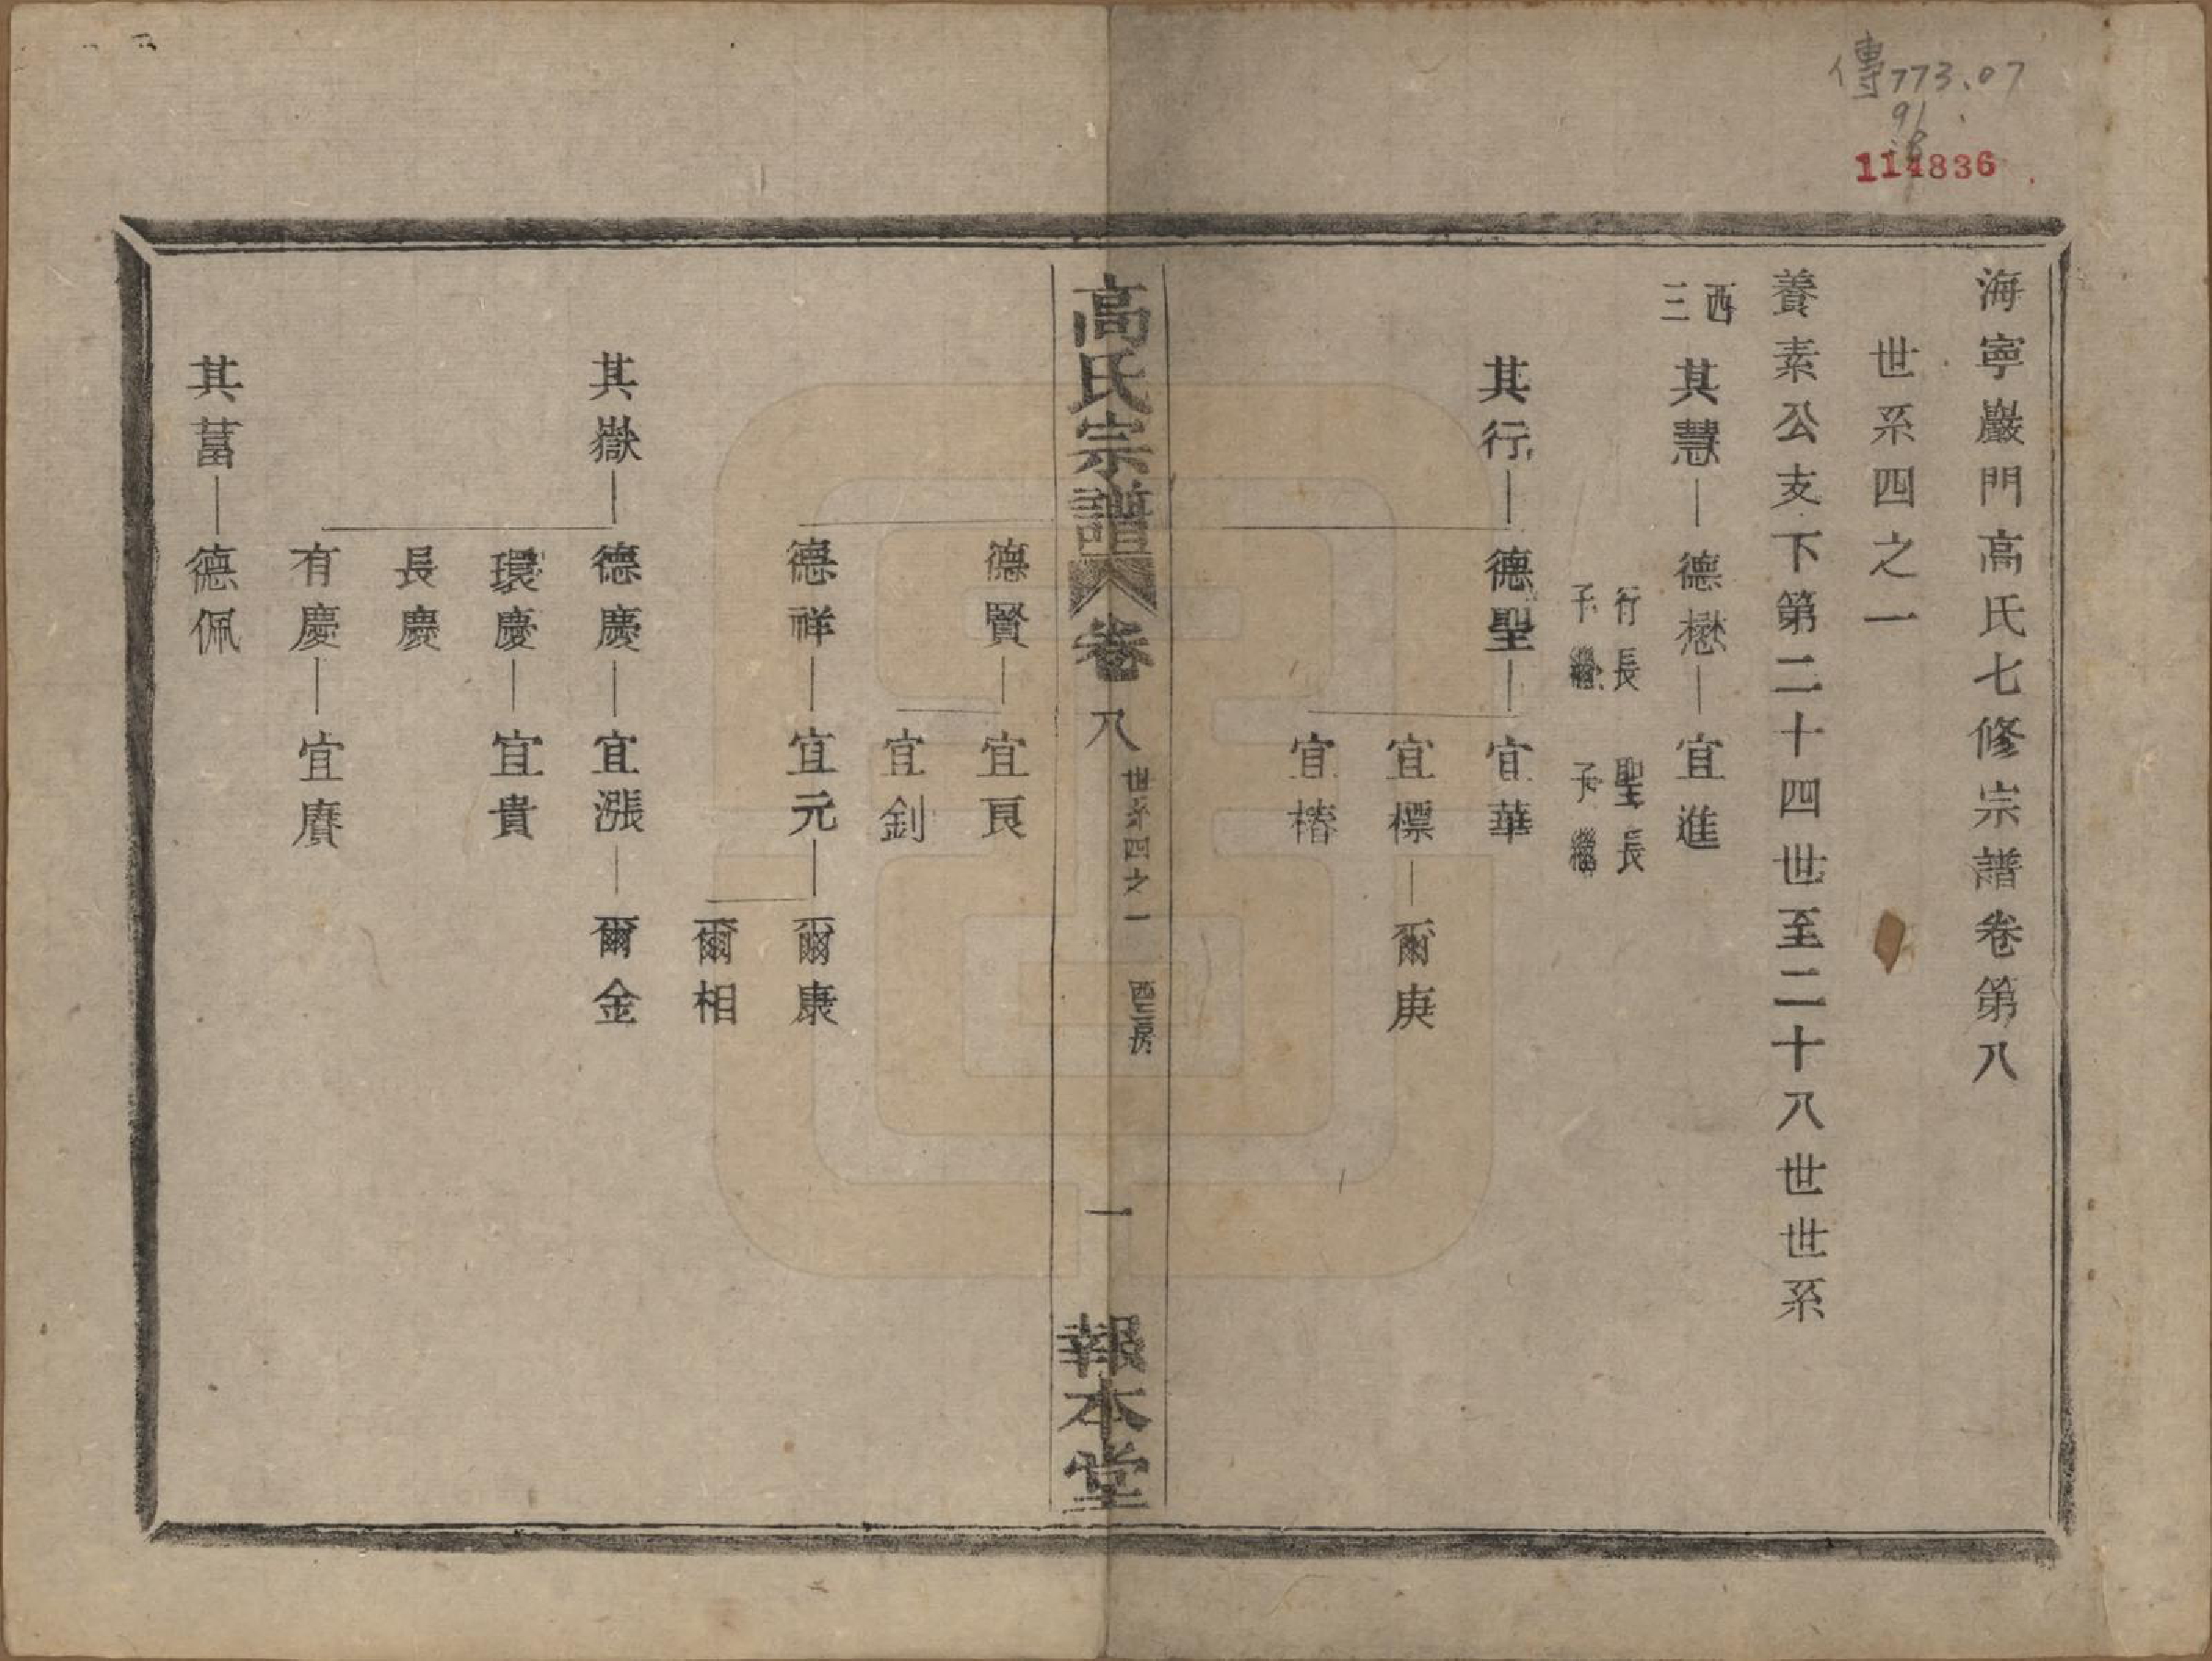 傳773.07
91
114836
海寧巖門高氏七修宗譜卷第八
世系四之一
養素公支下第二十四世至二十八世世系
西三
其慧 德懋 宜進
行長子繼 聖長子繼
其行 德聖 宜華
宜標 爾庚
宜椿
高氏宗譜 卷八 世系四之一 西三房 一 報本堂
德賢 宜良
宜釗
德祥 宜元 爾康
爾相
其嶽 德慶 宜漲 爾金
環慶 宜貴
長慶
有慶 宜賡
其菖 德佩